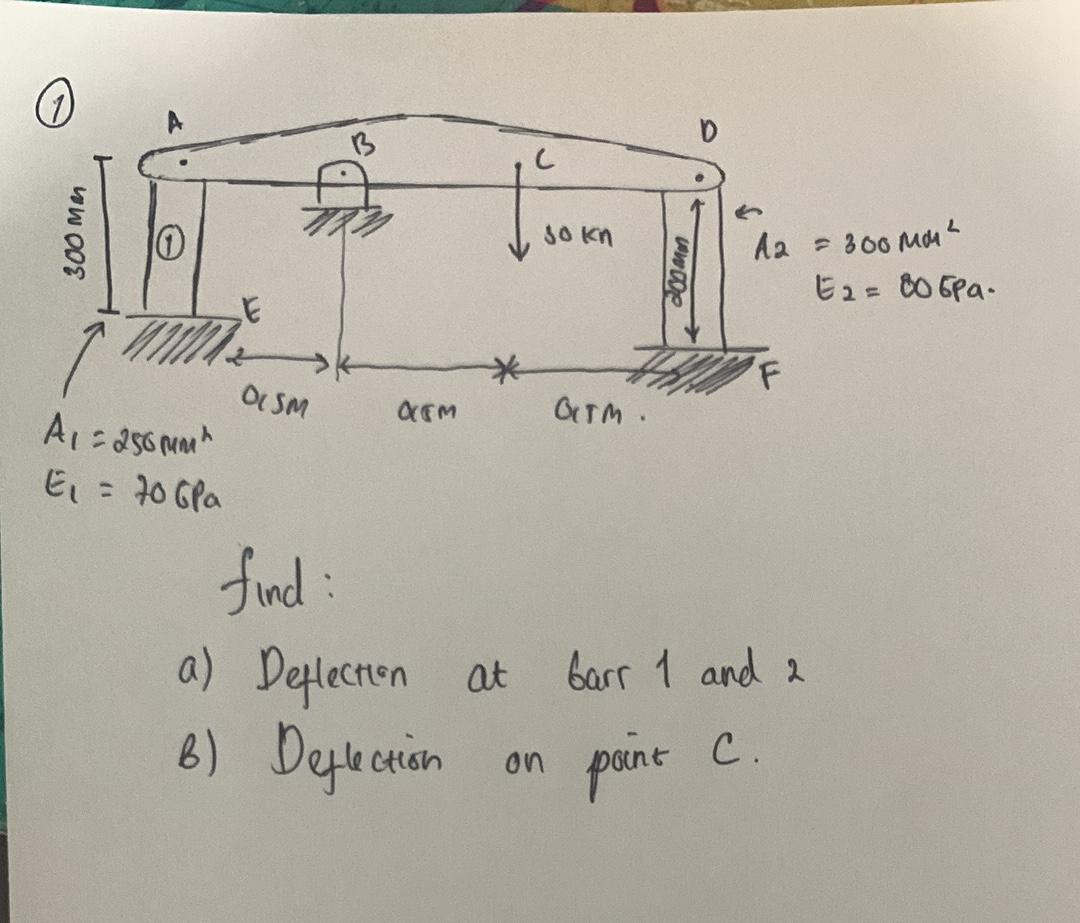 1
A
B
D
C
300 MM
1
30 KN
200 MM
A2 = 300 MM²
E2 = 80 GPa.
E
F
0,5M
0,5M
0,5M.
A1 =
E1 = 70 GPa
find :
a) Deflection at barr 1 and 2
B) Deflection on point C.